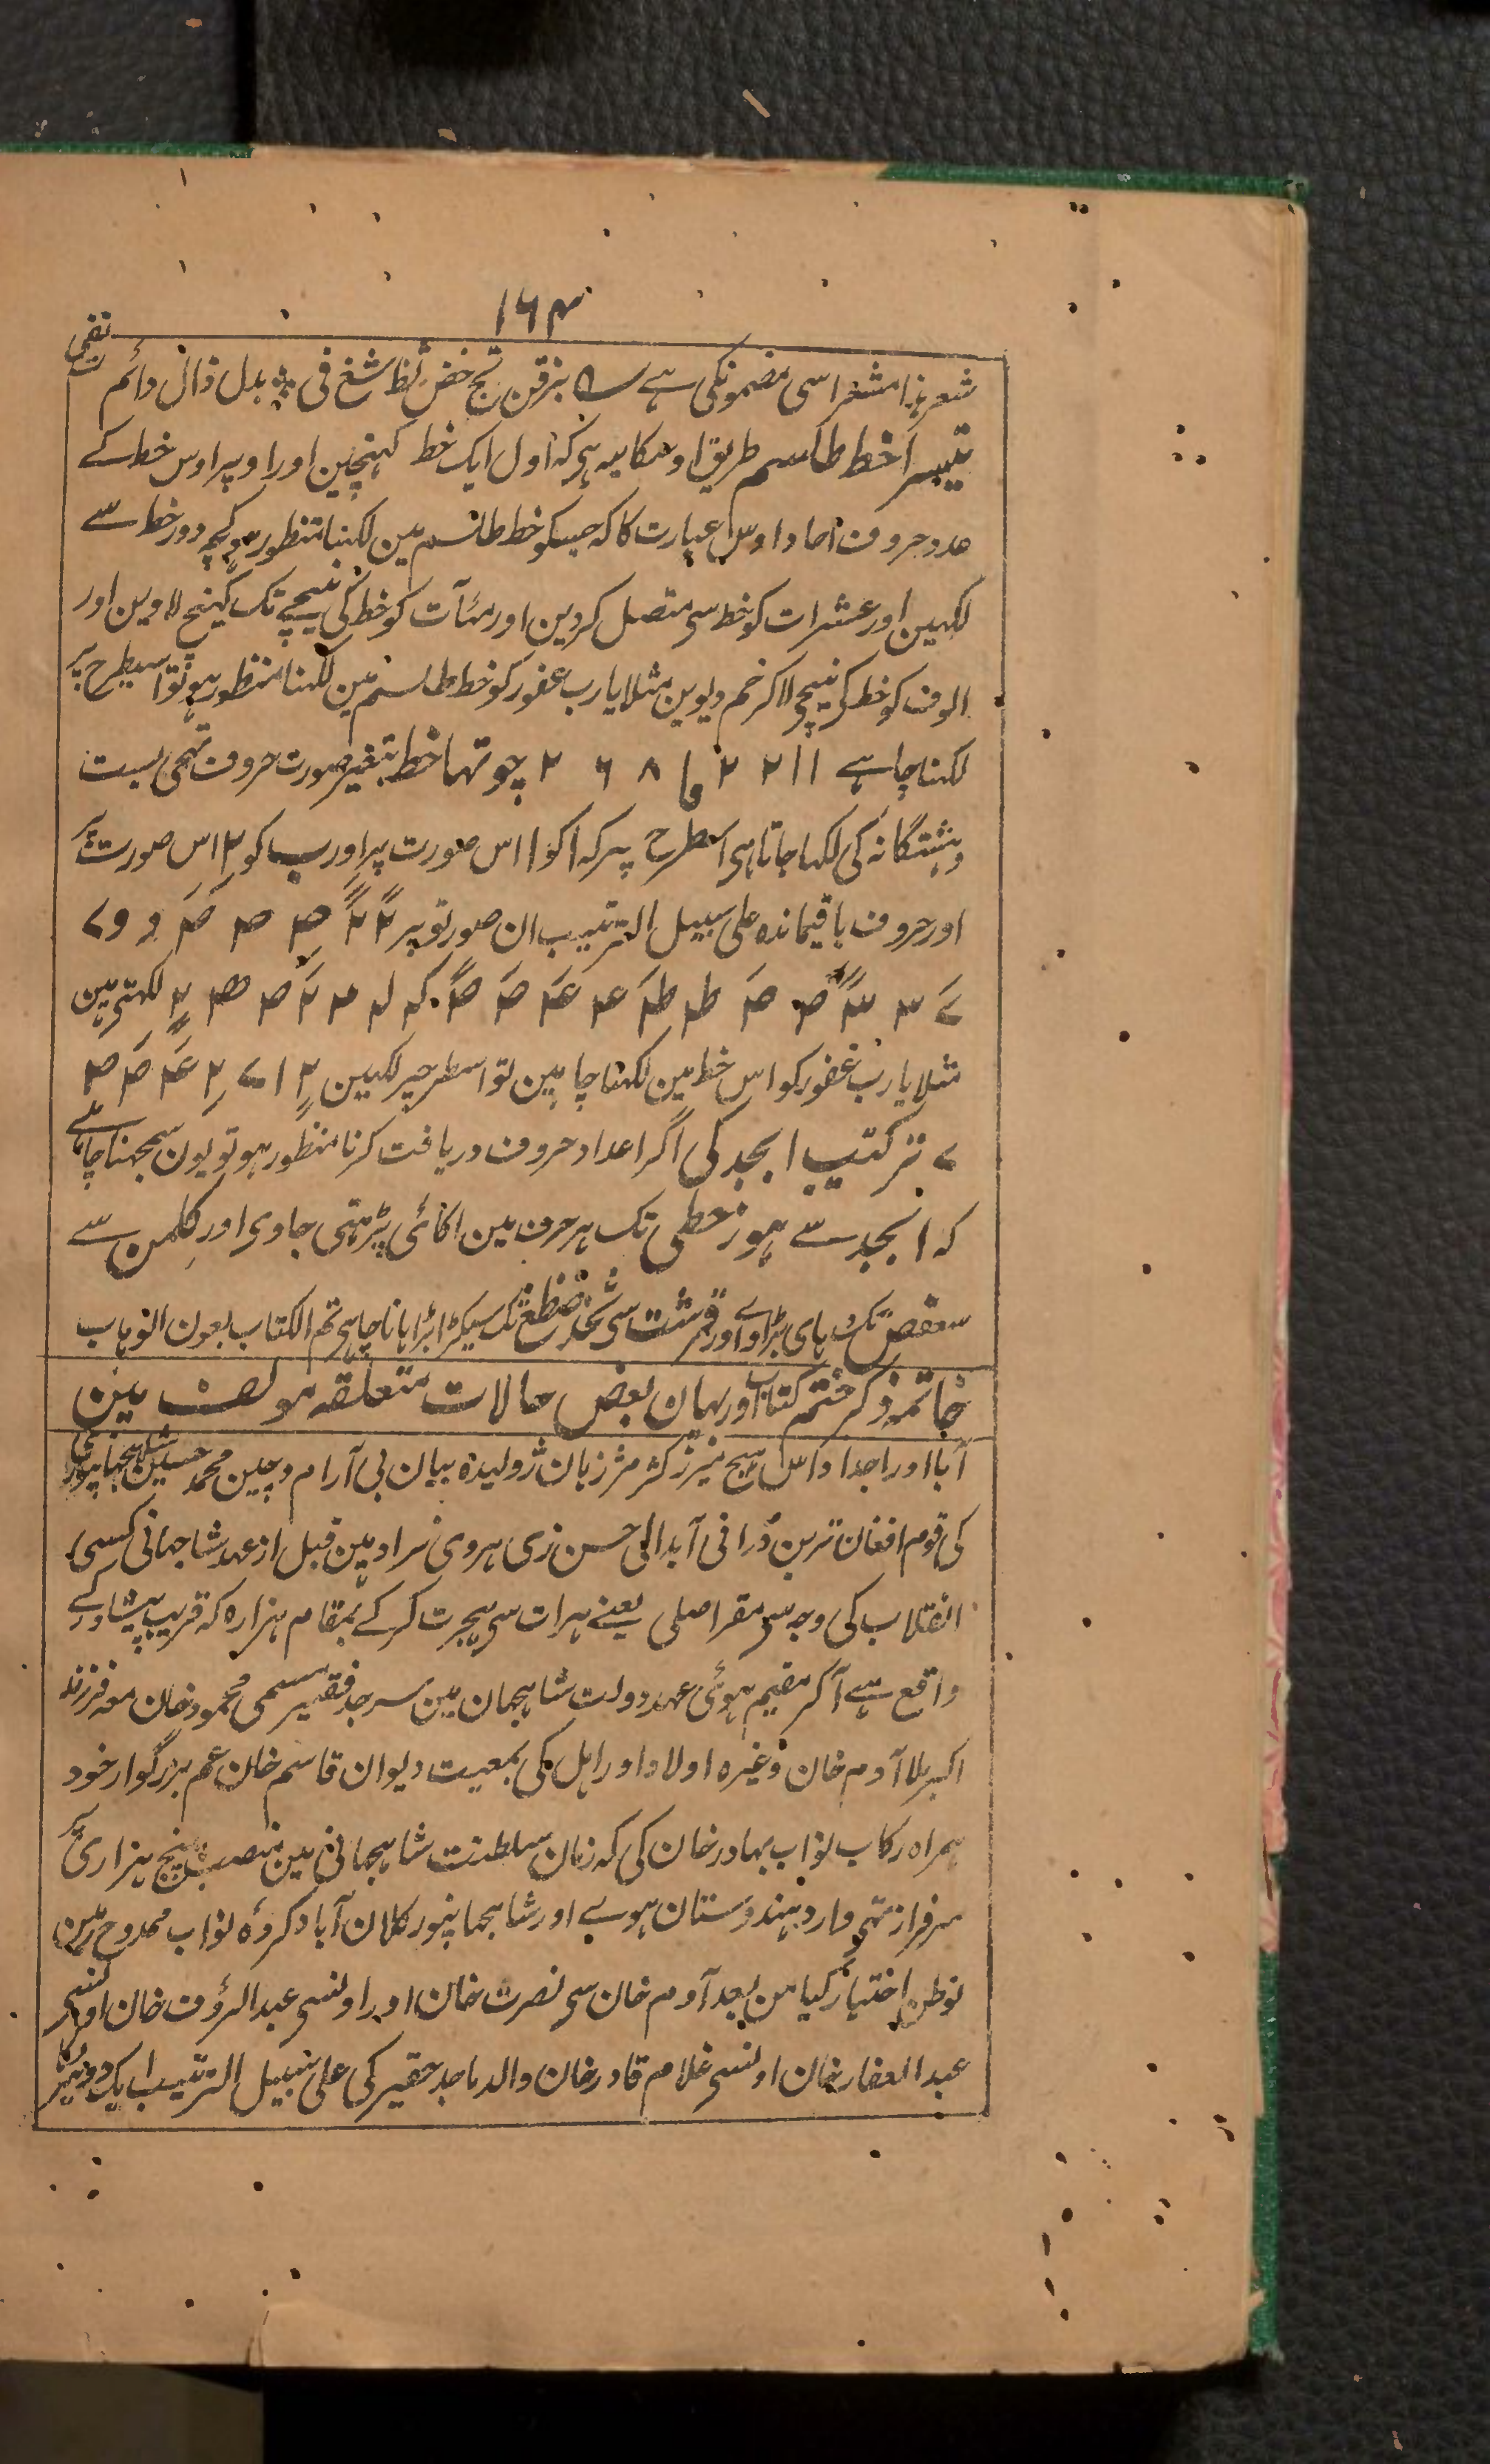 ۱۶۴
شعر ہذا مشعر اسی مضمونکی ہے بزقن تج خض ثظ شغ فی بدل ذال دائم نفی
تیسرا خط طلسم طریق اوسکا یہ ہی کہ اول ایک خط کہنچین اور اوپر اوس خط کے
عدد حروف احاد اوس عبارت کا کہ جسکو خط طلسم مین لکہنا منظور ہو کچہ دور خط سے
لکہین اور عشرات کو خط سی متصل کردین اور مئآت کو خط کی نیچے تک کہینچ لاوین اور
الوف کو خط کی نیچی لاکر خم دیوین مثلا یارب غفور کو خط طلسم مین لکہنا منظور ہو تو اسیطرح پر
لکہنا چاہیے ۱۱ ۲ ۲ ۲ ۸ ۶ ۲ چوتہا خط بتغیر صورت حروف تہجی بست
وہشتگانہ کی لکہا جاتا ہی اسطرح پر کہ ا کو ا اس صورت پر اور ب کو ۲ اس صورت پر
اور حروف باقیماندہ علی سبیل الترتیب ان صورتو پر
لکہتی ہین
مثلا یارب غفور کو اس خط مین لکہنا چاہین تو اسطرحپر لکہین
ترکتیب ابجد کی اگر اعداد حروف دریافت کرنا منظور ہو تو یون سمجہنا چاہئے
کہ ابجد سے ہوز حطی تک ہر حرف مین اکائی بڑہتی جاوی اور کلمن سے
سعفص تک دہای بڑاوے اور قرشت سی ثخذ ضظغ تک سیکڑا بڑہانا چاہی تم الکتاب بعون الوہاب
خاتمہ ذکر ختم کتاب اور بیان بعض حالات متعلقہ مولف مین
آبا اور اجداد اس ہیچ میرز کثر مثر زبان ژولیدہ بیان بی آرام و چین محمد حسین شاہجہانپوری
کی قوم افغان ترین دُرانی آبدالی حسن زی ہروی نراد ہین قبل از عہد شاہجہانی کسی
انقلاب کی وجہ سی مقر اصلی یعنے ہرات سی ہجرت کرکے بمقام ہزارہ کہ قریب پیشاور کے
واقع ہے آکر مقیم ہوئی عہد دولت شاہجہان مین سرجد فقیر مسمی محمود خان معہ فرزند
اکبر ملا آدم خان وغیرہ اولاد اور اہل کی بمعیت دیوان قاسم خان عم بزرگوار خود
ہمراہ رکاب نواب بہادر خان کی کہ زمان سلطنت شاہجہانی مین منصب پنج ہزاری پر
سرفراز تہی وارد ہندوستان ہوے اور شاہجہانپور کلان آباد کردہ نواب ممدوح مین
توطن اختیار کیا من بعد آدم خان سی نصرت خان اور اونسی عبد الرؤف خان اونسی
عبد الغفار خان اونسی غلام قادر خان والد ماجد حقیر کی علی سبیل الترتیب ایک